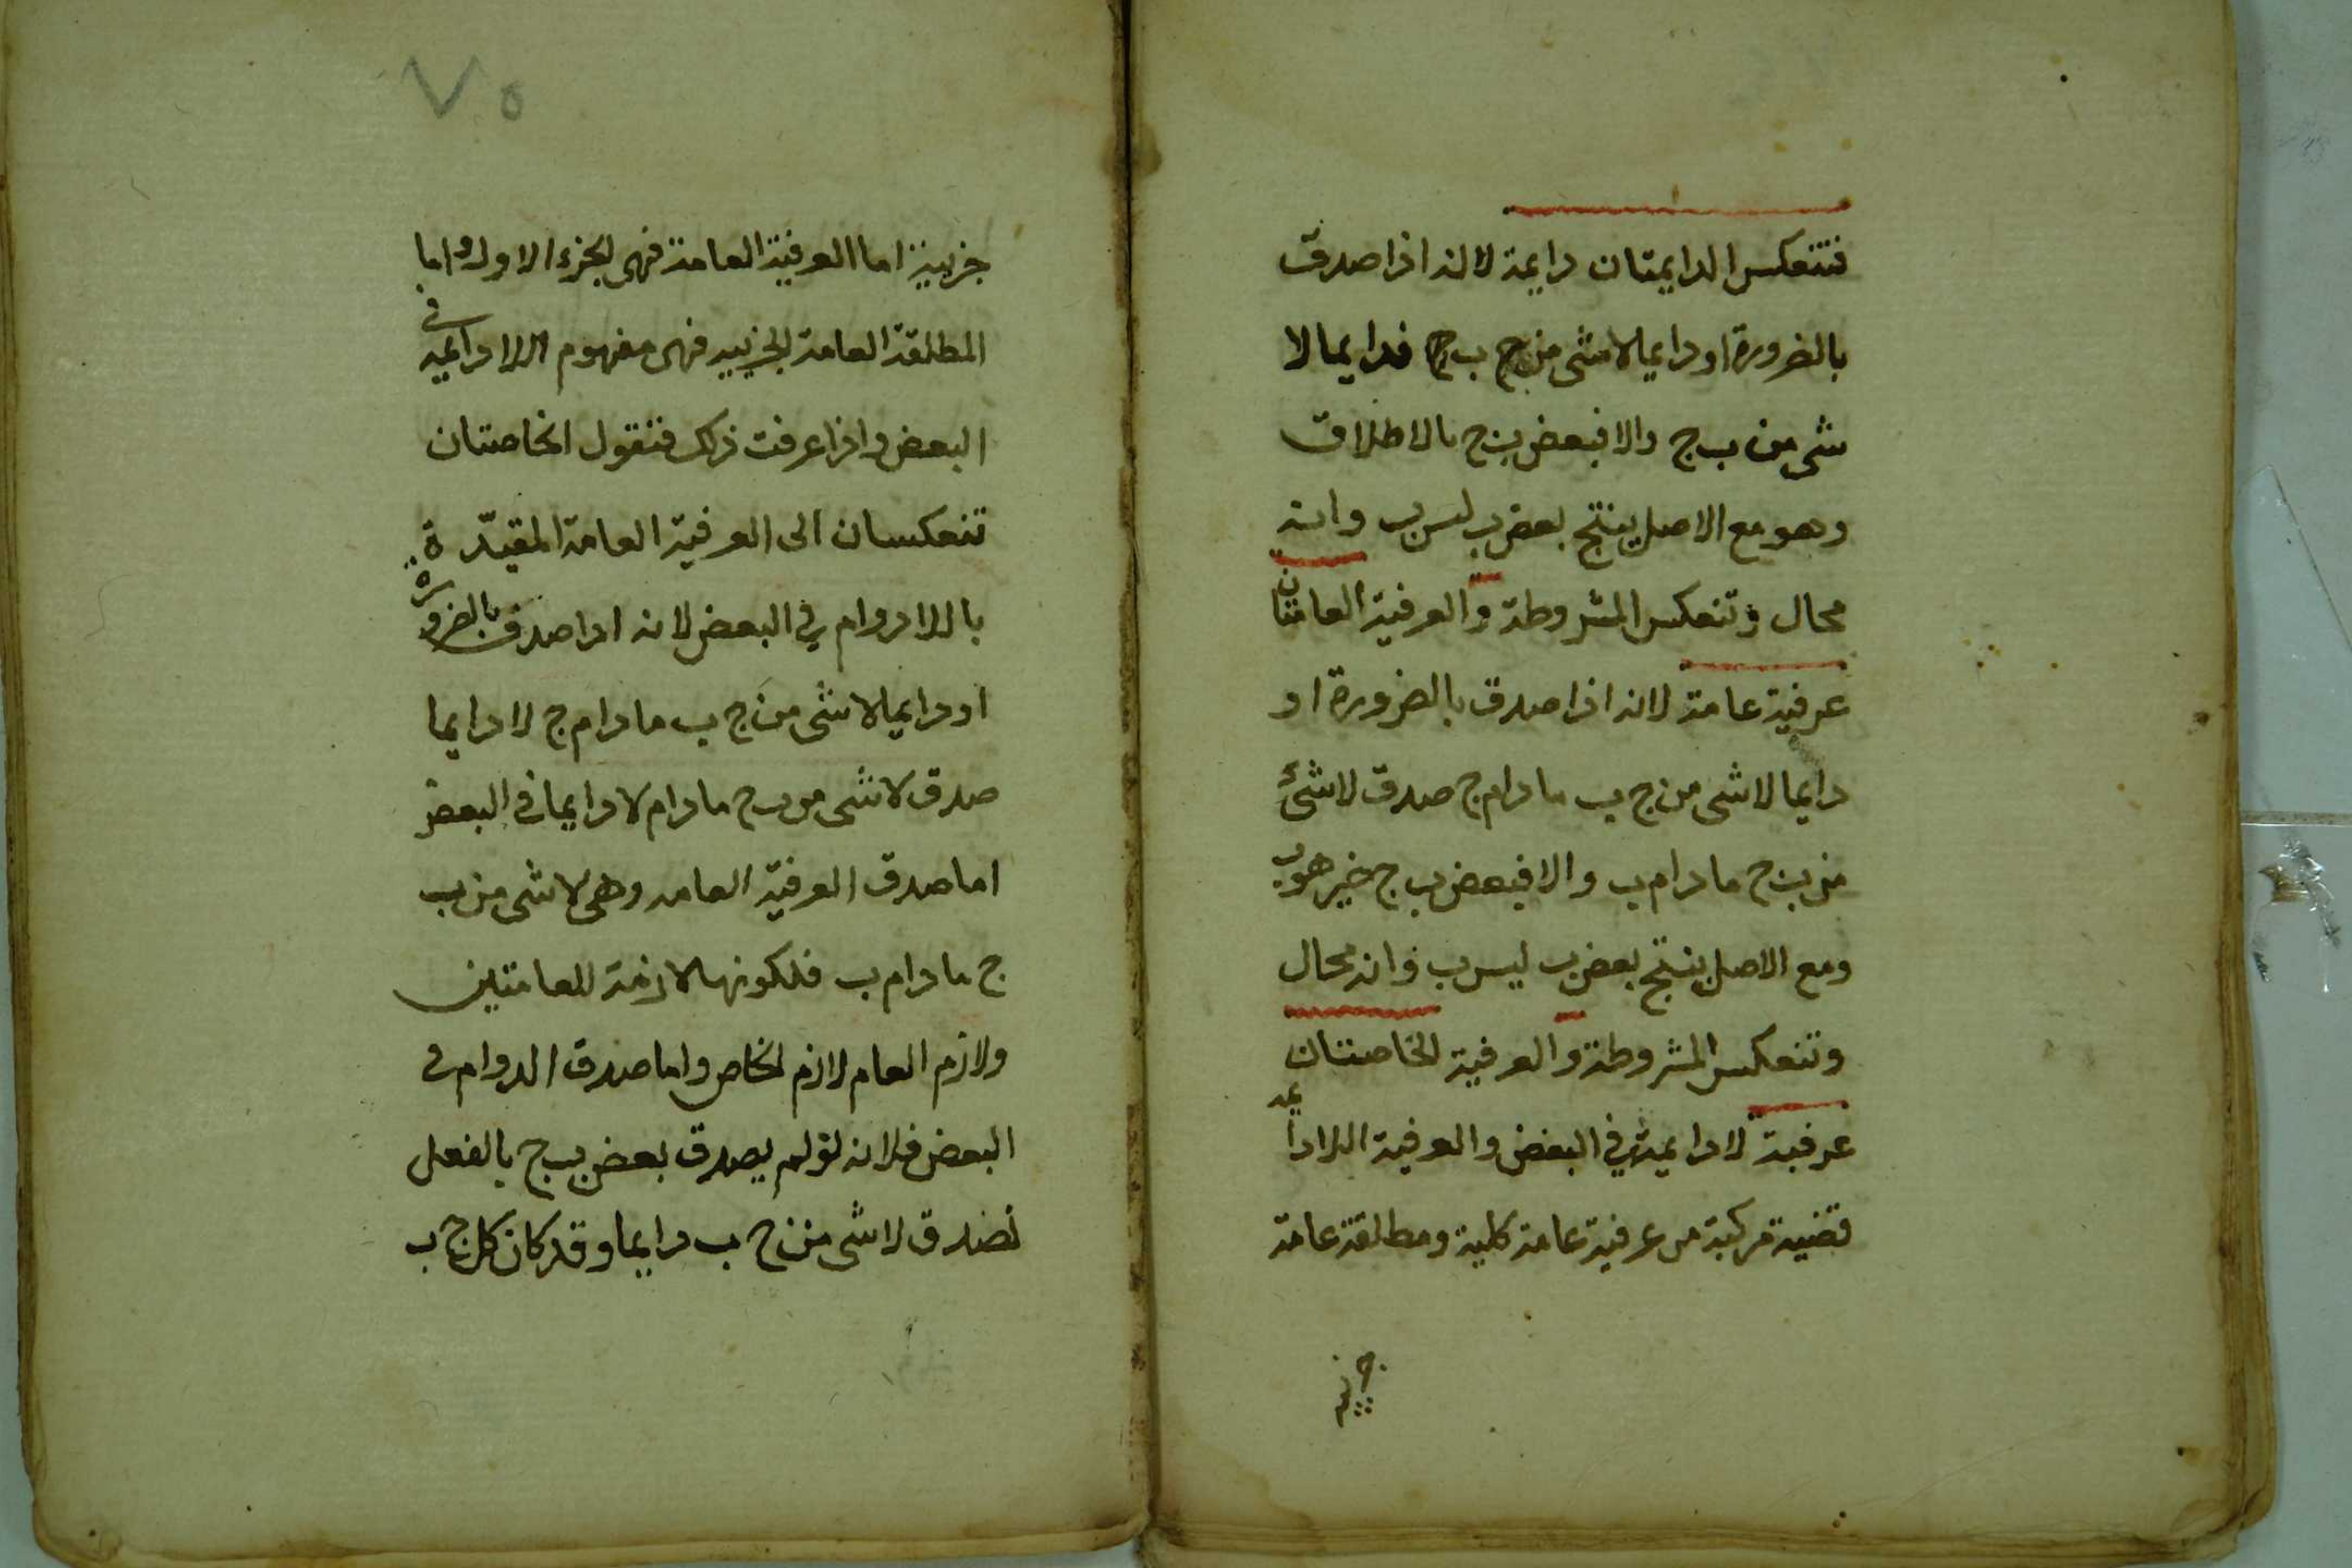 فتنعكس الدايمتان دايمة لانه اذا صدق
بالضرورة او دايما لاشى من ج ب فدايما لا
شى من ب ج والا فبعض ب ج بالاطلاق
وهو مع الاصل ينتج بعض ب ليس ب وانه
محال وتنعكس المشروطة والعرفية العامتان
عرفية عامة لانه اذا صدق بالضرورة او
دايما لاشى من ج ب ما دام ج صدق لاشئ
من ب ج ما دام ب والا فبعض ب ج حين هو ب
ومع الاصل ينتج بعض ب ليس ب وانه محال
وتنعكس المشروطة والعرفية الخاصتان
عرفية لا دايمة في البعض والعرفية اللادايمه
قضية مركبة من عرفية عامة كلية ومطلقة عامة
جزيية
٧٥
جزيية اما العرفية العامة فهى الجزء الاول واما
المطلقة العامة الجزييه فهى مفهوم اللادايميه فى
البعض واذا عرفت ذلك فنقول الخاصتان
تنعكسان الى العرفية العامة المقيّدة
باللادوام في البعض لانه اذا صدق بالضروره
او دايما لاشى من ج ب ما دام ج لا دايما
صدق لاشى من ب ج ما دام لا دايما فى البعض
اما صدق العرفية العامه وهى لاشى من ب
ج ما دام ب فلكونها لازمة للعامتين
ولازم العام لازم الخاص واما صدق الدوام فى
البعض فلانه لو لم يصدق بعض ب ج بالفعل
لصدق لاشى من ج ب دايما وقد كان كل ج ب